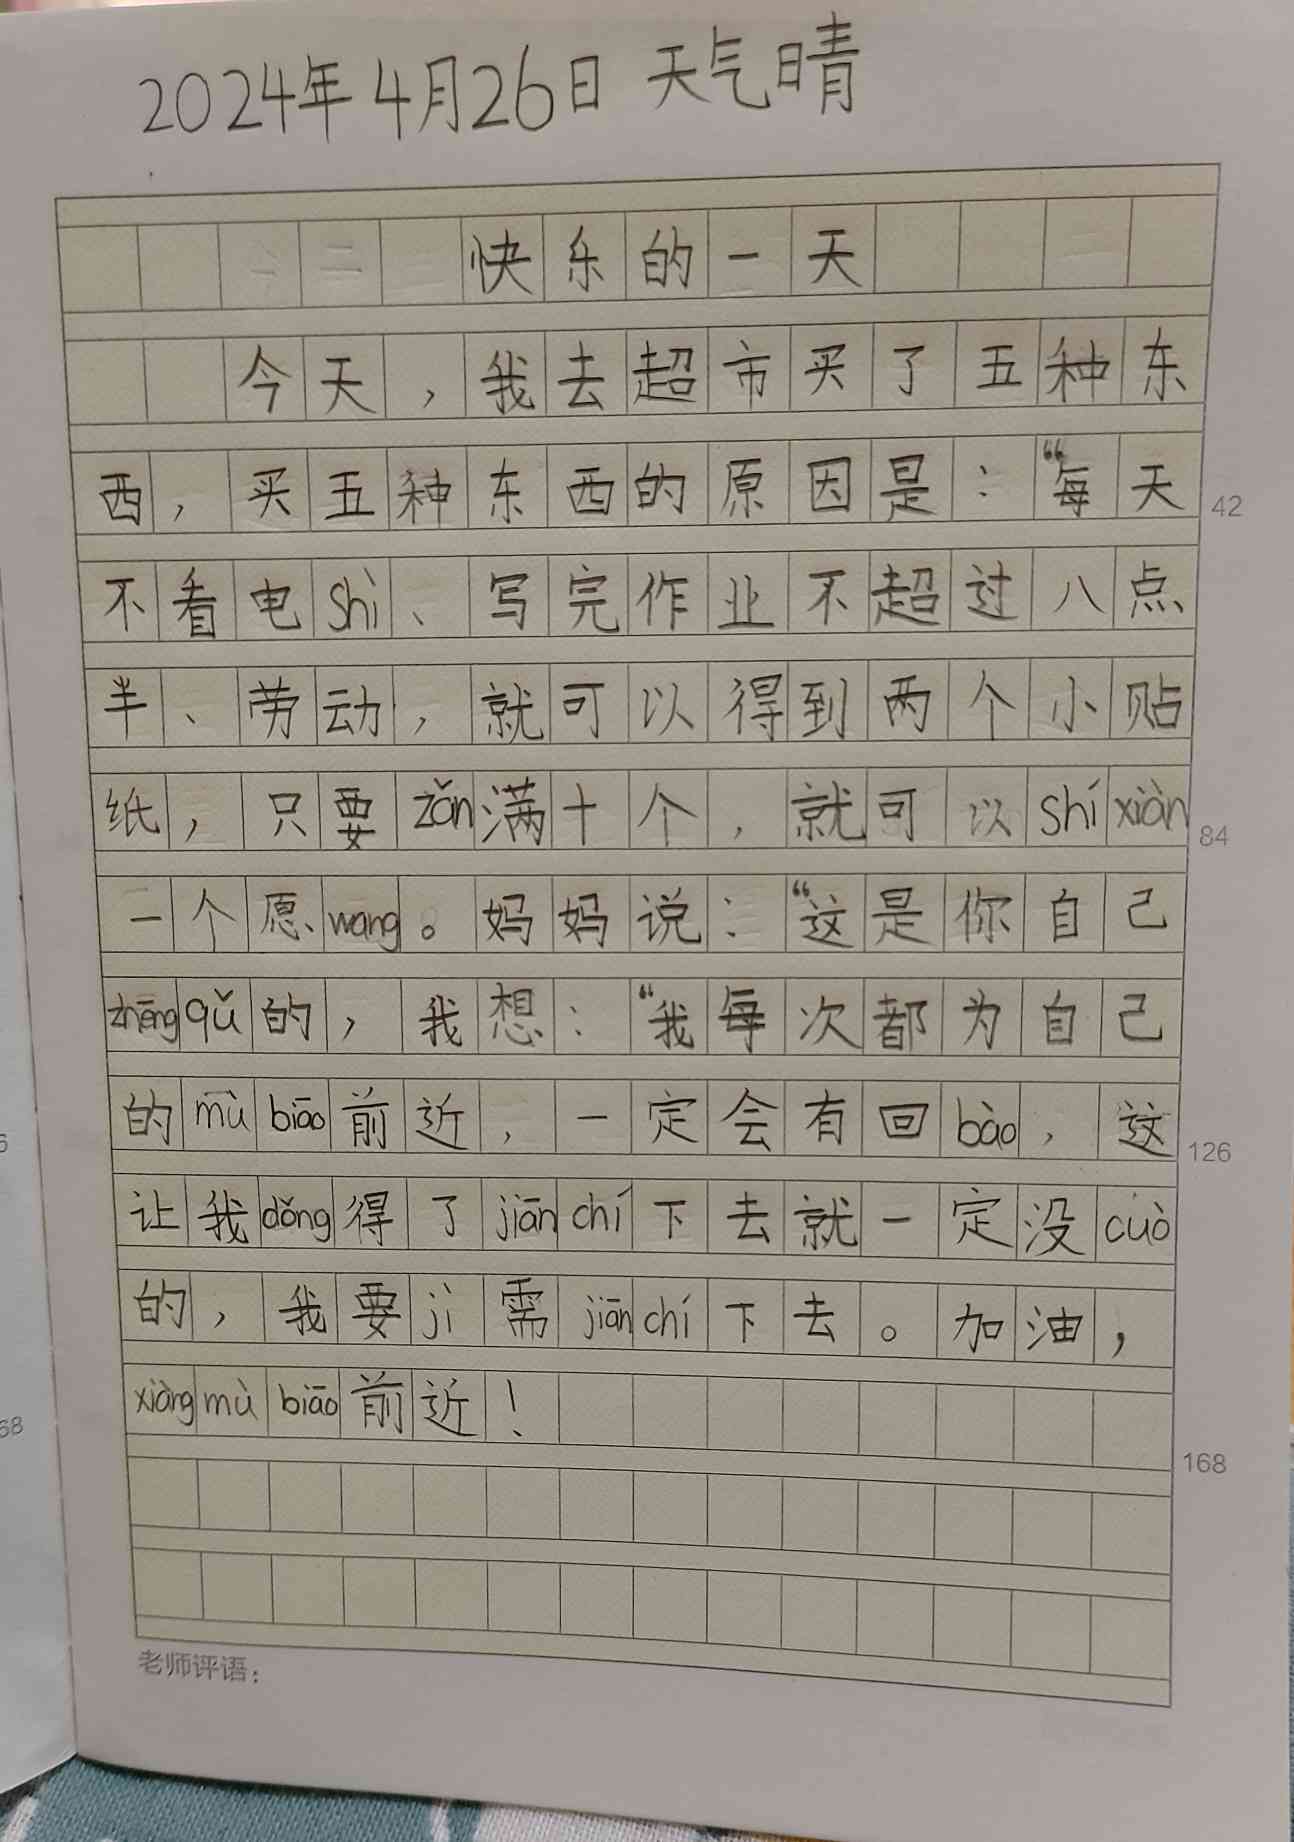 2024年4月26日 天气晴
快乐的一天
今天，我去超市买了五种东
西，买五种东西的原因是：“每天
42
不看电shì、写完作业不超过八点
半、劳动，就可以得到两个小贴
纸，只要zǎn满十个，就可以shí xiàn
84
一个愿wang。妈妈说：“这是你自己
zhēng qǔ的，我想：“我每次都为自己
的mù biāo前近，一定会有回bào，这
126
让我dǒng得了jiān chí下去就一定没cuò
的，我要jì需jiān chí下去。加油，
xiàng mù biāo前近！
168
68
老师评语：